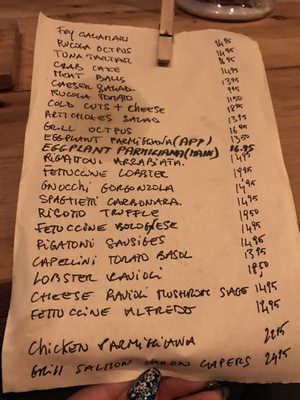 FRY CALAMARI 14.95
RUCOLA OCTPUS 14.95
TUNA TARTAR 16.95
CRAB CAKE 14.95
MEAT BALLS 13.95
CAESER SALAD. 9.95
RUCOLA TOMATO 11.50
COLD CUTS + CHEESE 18.95
ARTICHOKES SALAD 13.95
GRILL OCTPUS 16.95
EGGPLANT PARMIGIANA (APP) 13.50
EGGPLANT PARMIGIANA (MAIN) 16.95
RIGATTONI ARRABIATA. 14.95
FETTUCCINE LOBSTER 19.95
GNOCCHI GORGONZOLA 14.95
SPAGHETTI CARBONARA. 14.95
RISOTO TRUFFLE 19.50
FETUCCINE BOLOGNESE 14.95
RIGATONI SAUSIGES 14.95
CAPELLINI TOMATO BASOL 13.95
LOBSTER RAVIOLI 18.50
CHEESE RAVIOLI MUSHROOM SAGE 14.95
FETTUCINE ALFREDO 14.95
CHICKEN PARMIGIANA 22.95
GRILL SALMON CAPERS 24.95